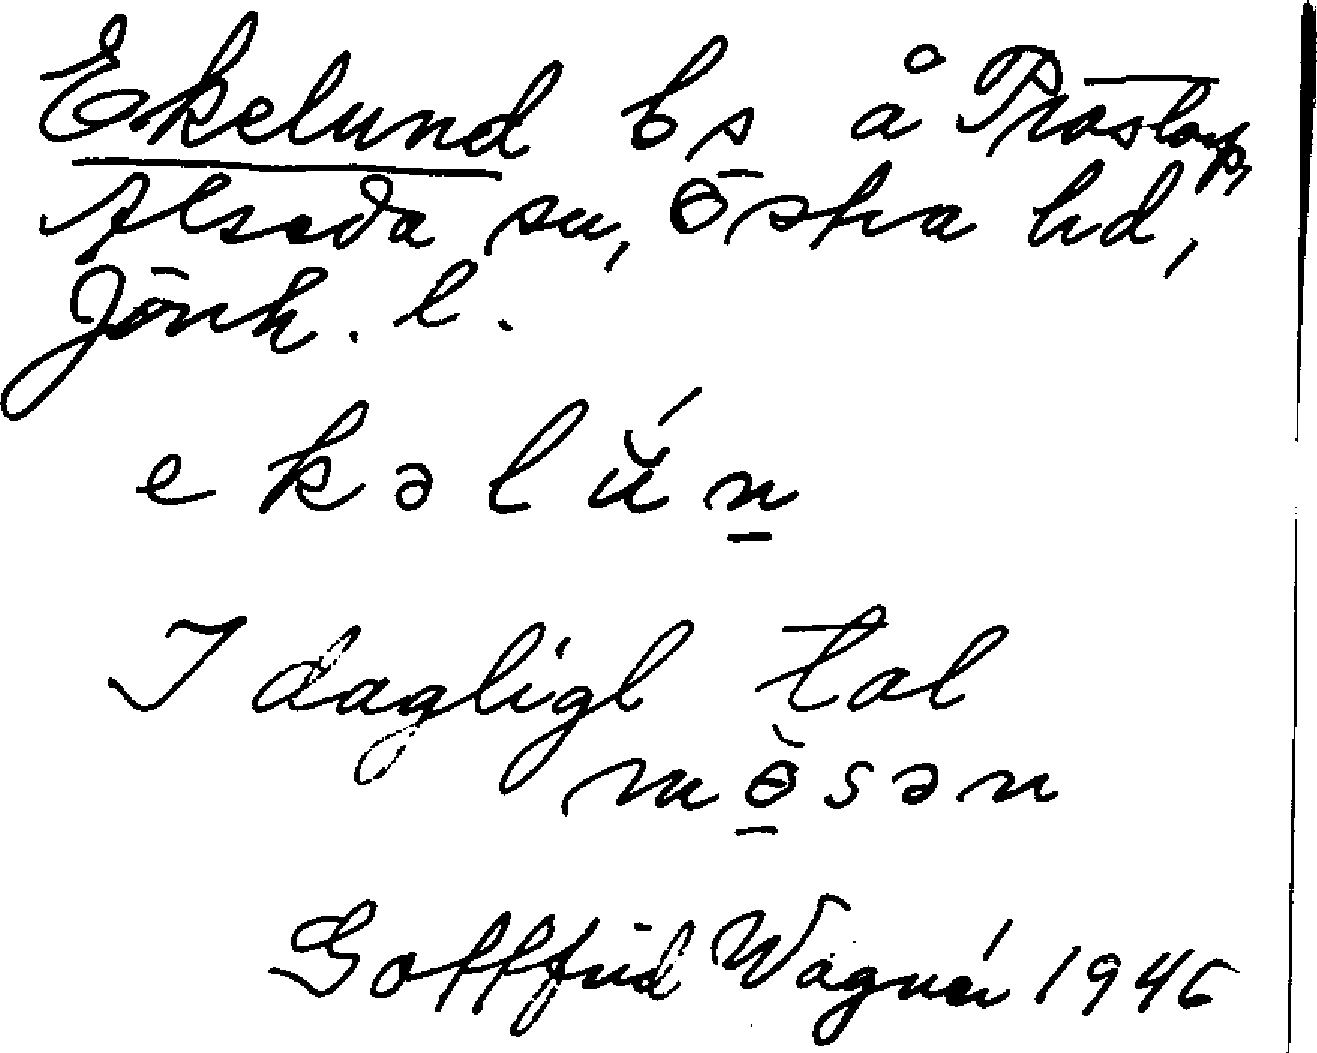 Ekelund bs å Tråstorp,
Alseda sn, Östra hd,
Jönk. l.
e k ə l ŭ́ n̲
I dagligt tal
m ö̲̆ s ə n
Gottfrid Wagnér 1946